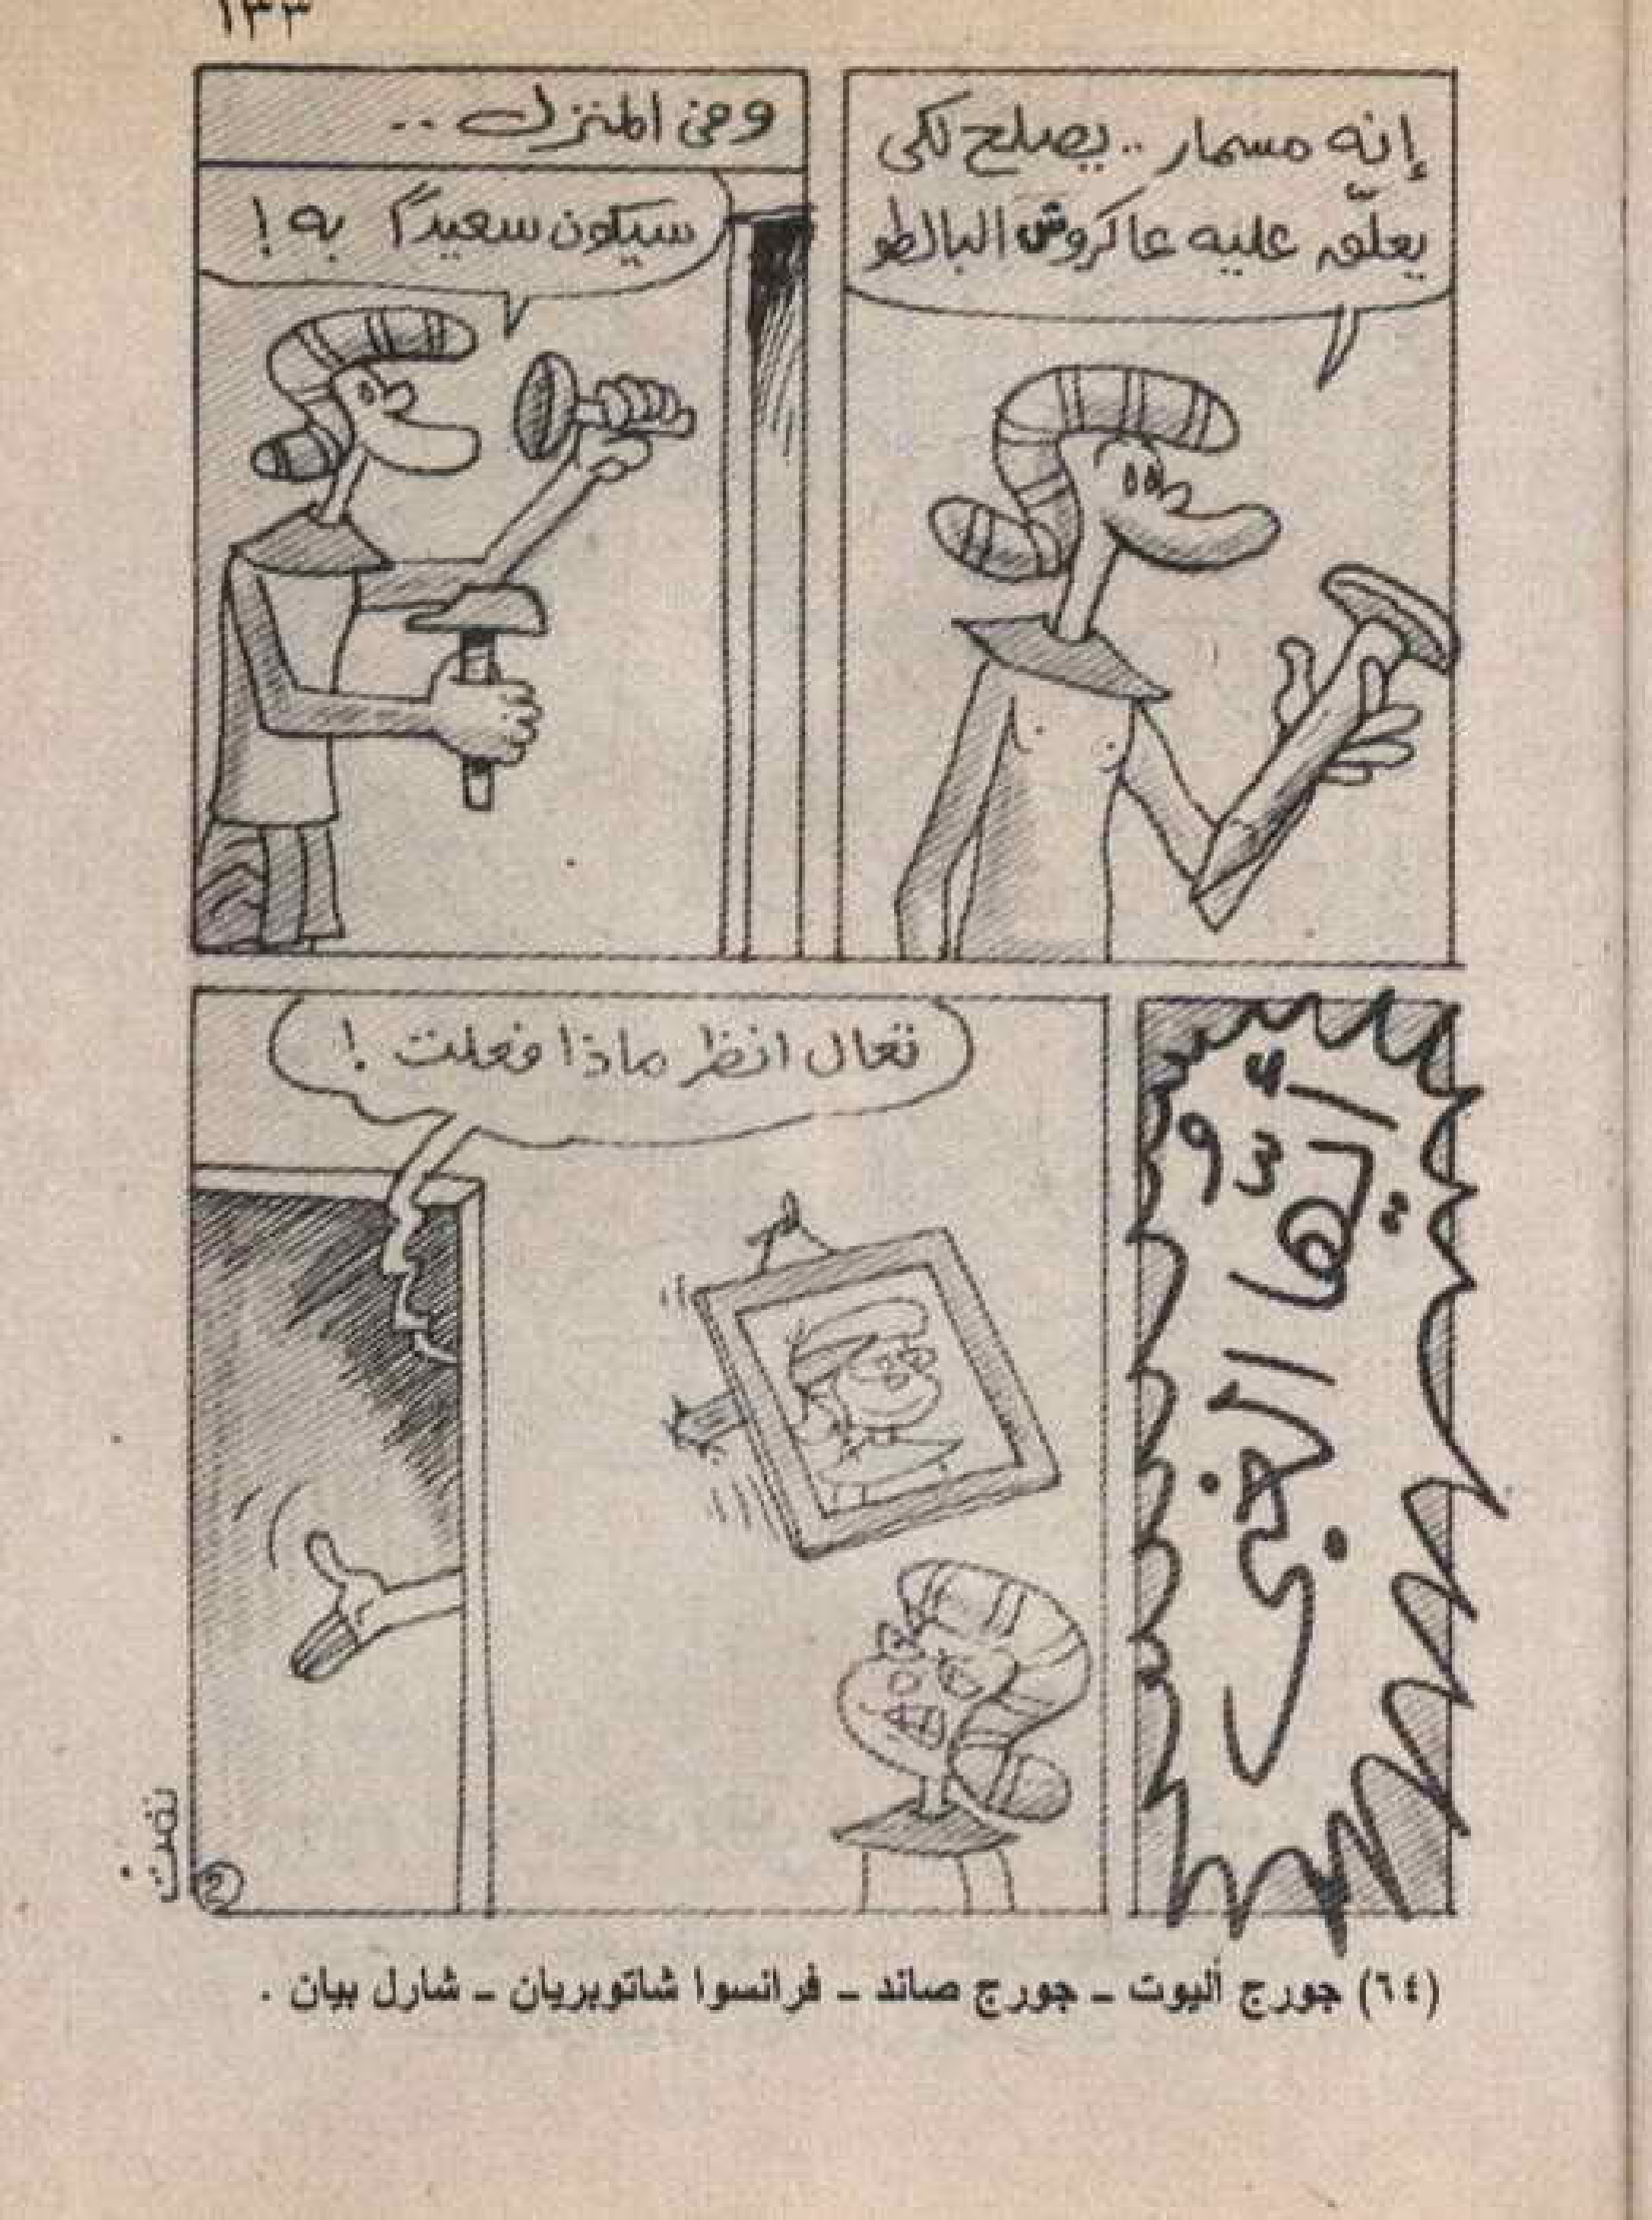 ١٣٣
إنه مسمار .. يصلح لكى
يعلّق عليه عاكروش البالطو
وفى المنزل ..
سيكون سعيداً به !
تعال انظر ماذا فعلت !
2
(٦٤) جورج أليوت ـ جورج صاند ـ فرانسوا شاتوبريان ـ شارل بيان .